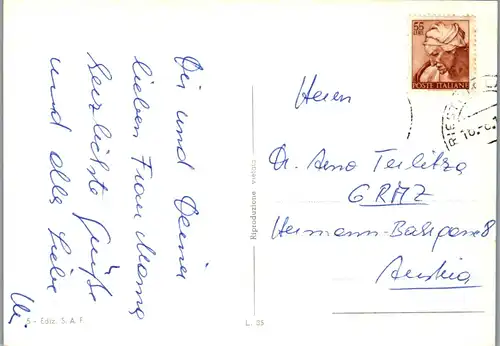 Dir und Deiner
lieben Frau Mama
herzlichste Grüße
und alles Liebe
5 - Ediz. S. A. F.
L. 35
Riproduzione vietata
55
LIRE
POSTE ITALIANE
Herrn
Dr. Arno Terlitza
GRAZ
Hermann-Bahrgasse 8
Austria